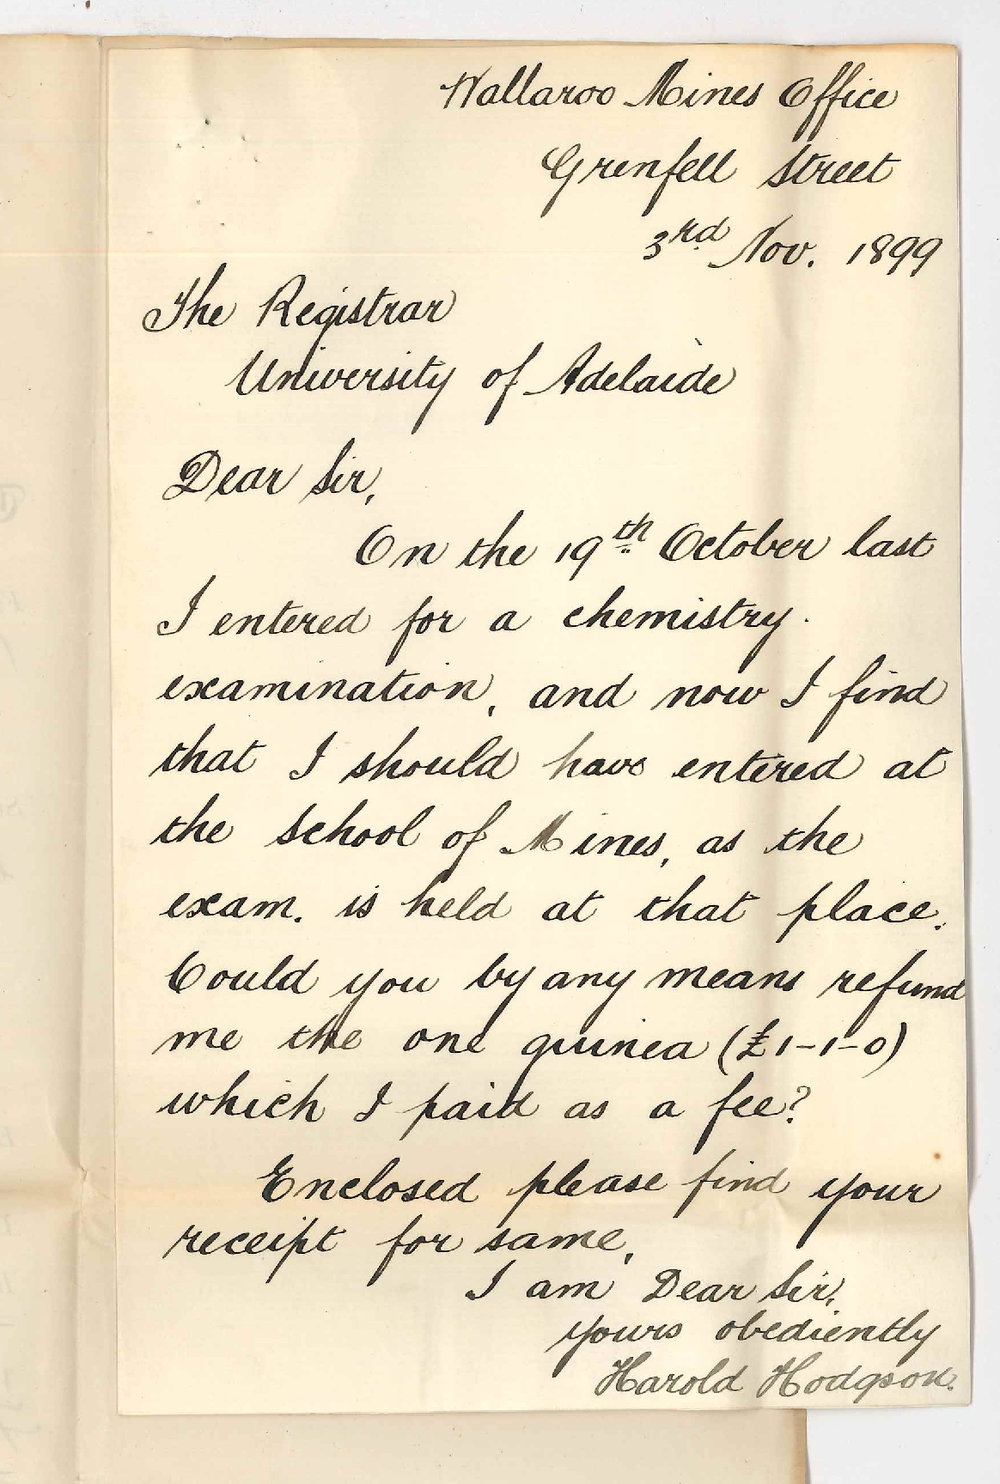 Wallaroo Mines Office
Grenfell Street
3rd Nov. 1899
The Registrar
University of Adelaide
Dear Sir,
On the 19th October last
I entered for a chemistry
examination, and now I find
that I should have entered at
the School of Mines, as the
exam. is held at that place.
Could you by any means refund
me the one guinea (£1-1-0)
which I paid as a fee?
Enclosed please find your
receipt for same,
I am Dear Sir,
yours obediently
Harold Hodgson.